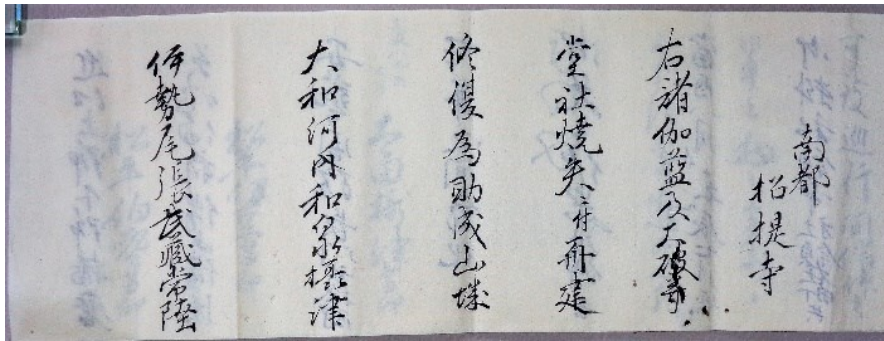 南都
招提寺
右諸伽藍及大破
堂社焼失ニ付再建
修復為助成山城
大和河内和泉摂津
伊勢尾張武蔵常陸